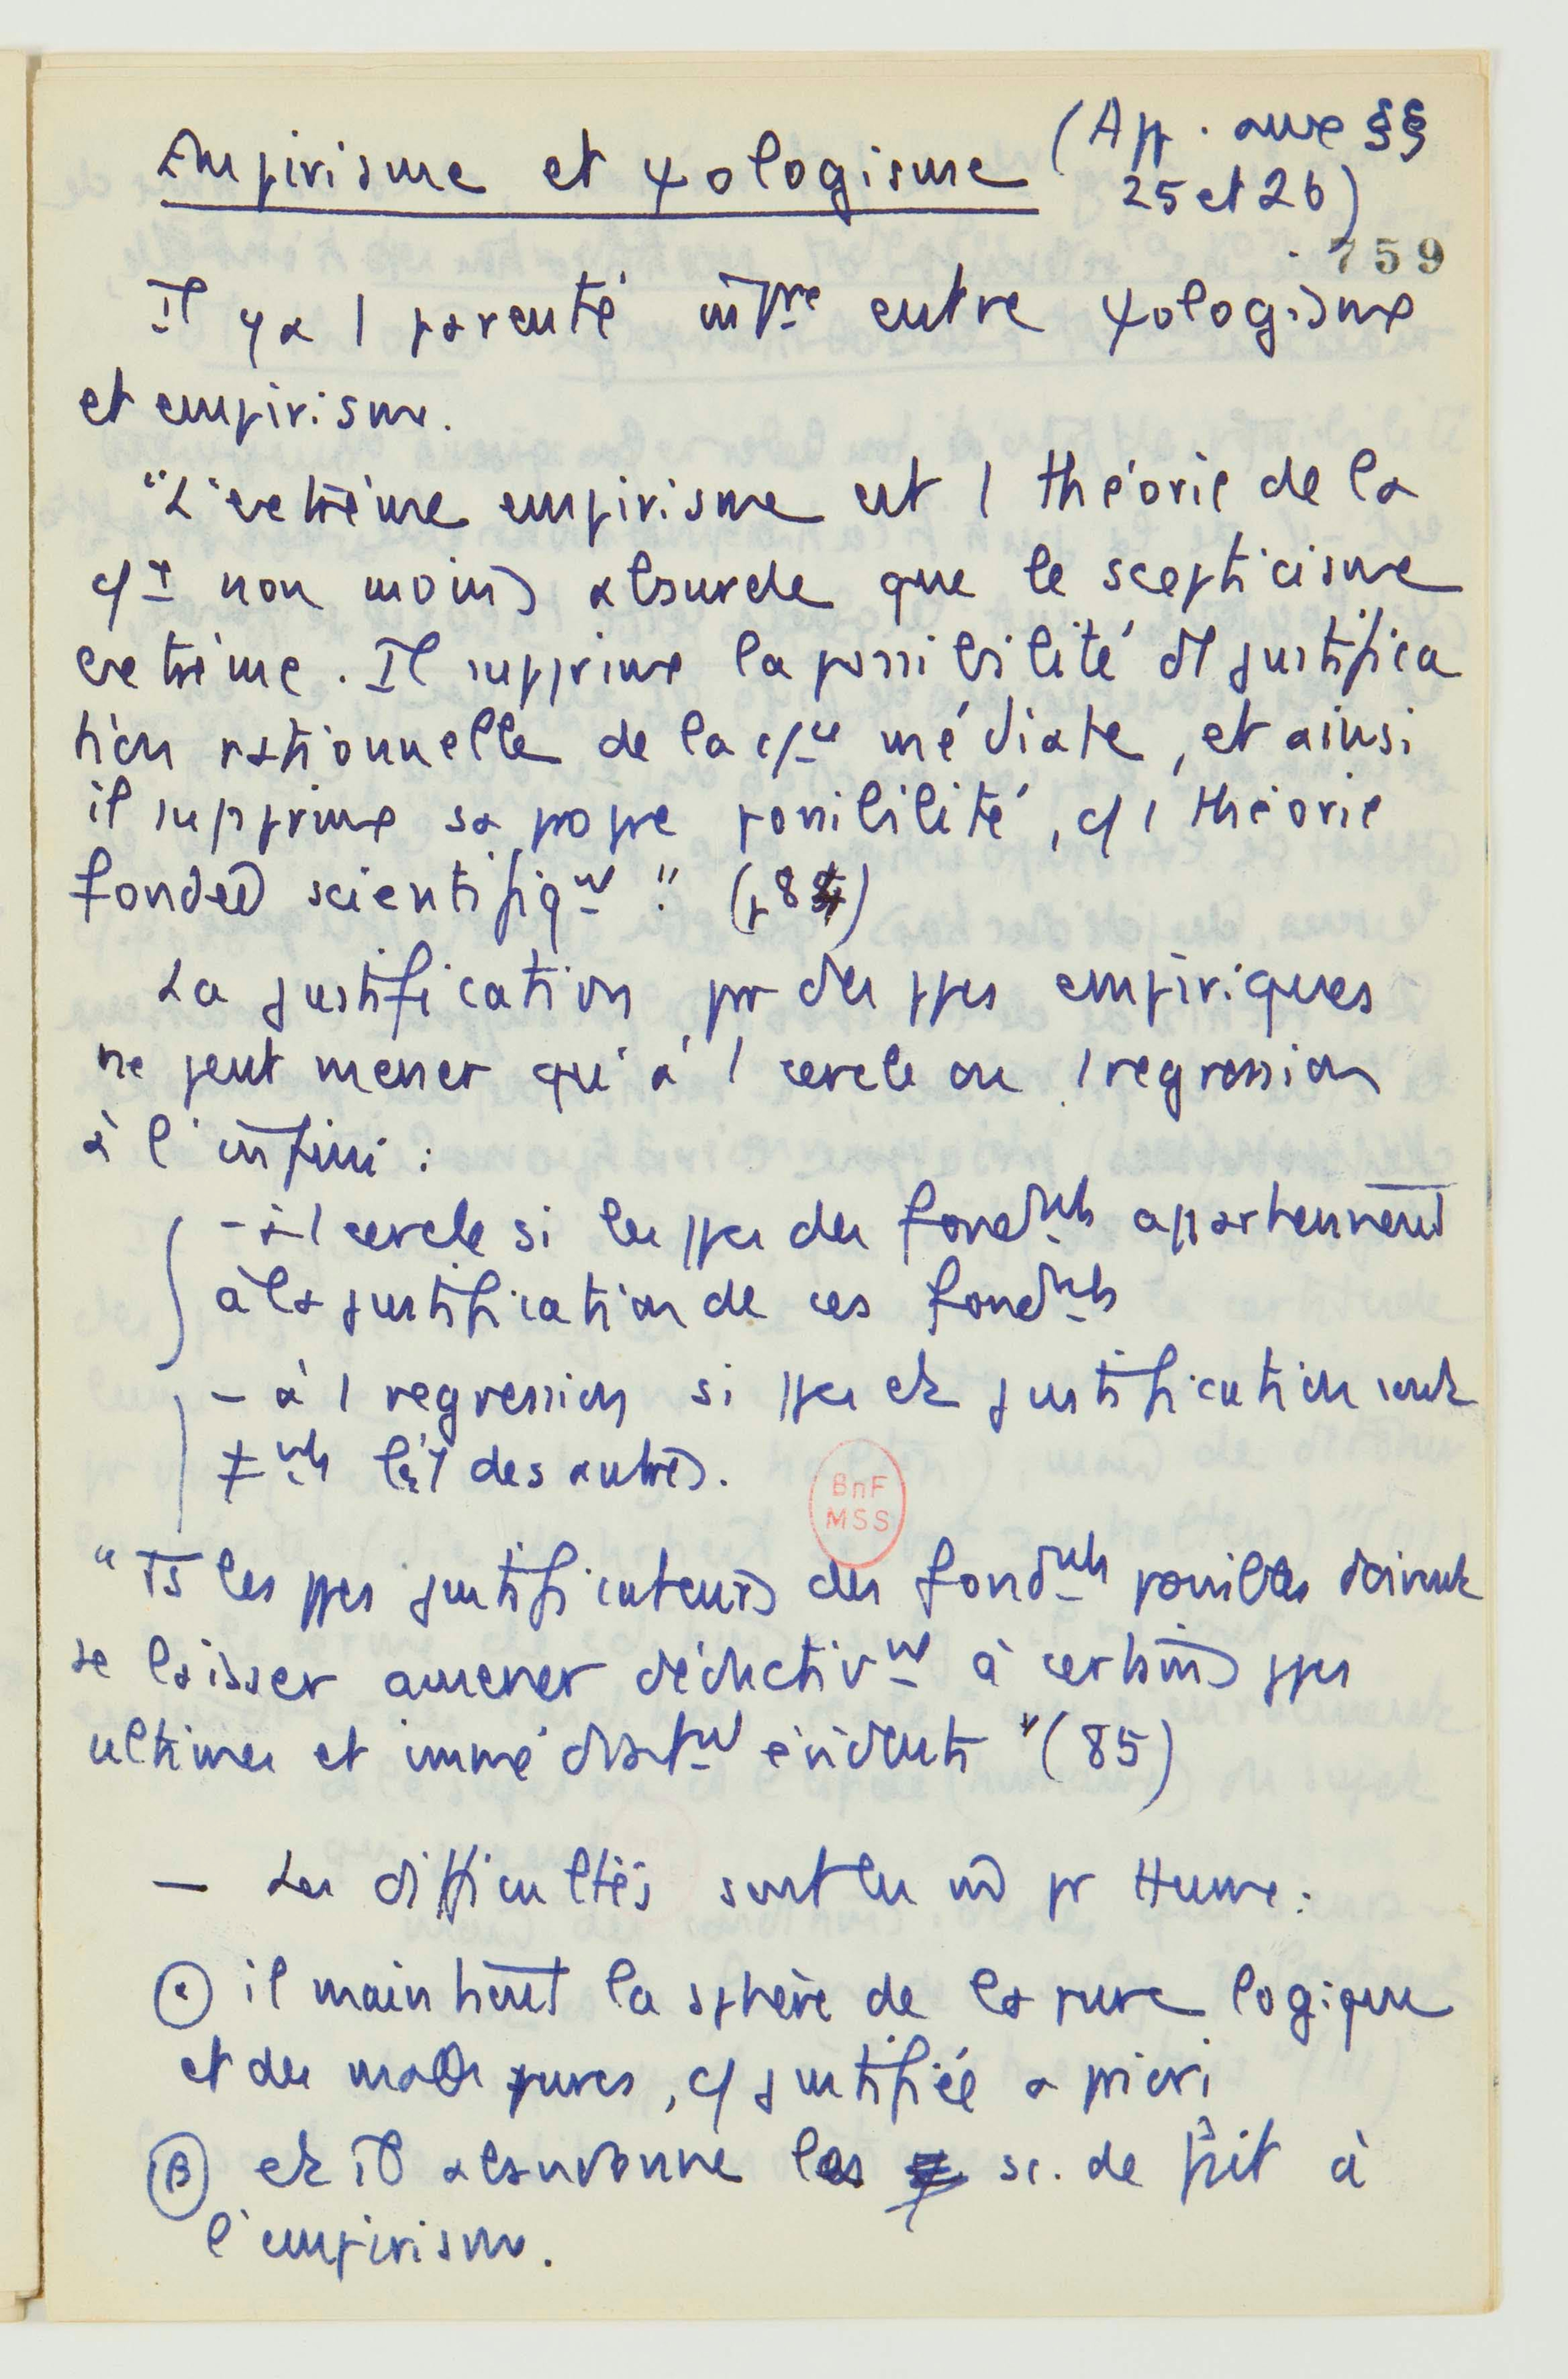 Empirisme et ψologisme (App. aux §§
25 et 26)
759
Il y a 1 parenté entre ψologisme
et empirisme.
"L'extrême empirisme est 1 théorie de la
non moins absurde que le scepticisme
extrême. Il supprime la possibilité d'1 justifica
tion rationnelle de la médiate, et ainsi
il supprime sa propre possibilité, c/ 1 théorie
fondée scientifiqᵗ." (p 84)
La justification pr des ppes empiriques
ne peut mener qu'à 1 cercle ou 1 regression
à l'infini :
- à 1 cercle si les ppes des fondᵐᵗˢ appartiennent
à la justification de ces fondᵐᵗˢ
- à 1 regression si ppes et justification sont
≠ᵗˢ les 1 des autres.
BnF
MSS
"Ts les ppes justificateurs des fondᵐᵗˢ possibles doivent
se laisser amener déductivᵗ à certains ppes
ultimes et immédiatᵗ évidents" (85)
— Les difficultés sont les m̂ pr Hume :
α il maintient la sphère de la pure logique
et des math pures, c/ justifiée a priori
β et il abandonne les sc. de fait à
l'empirisme.